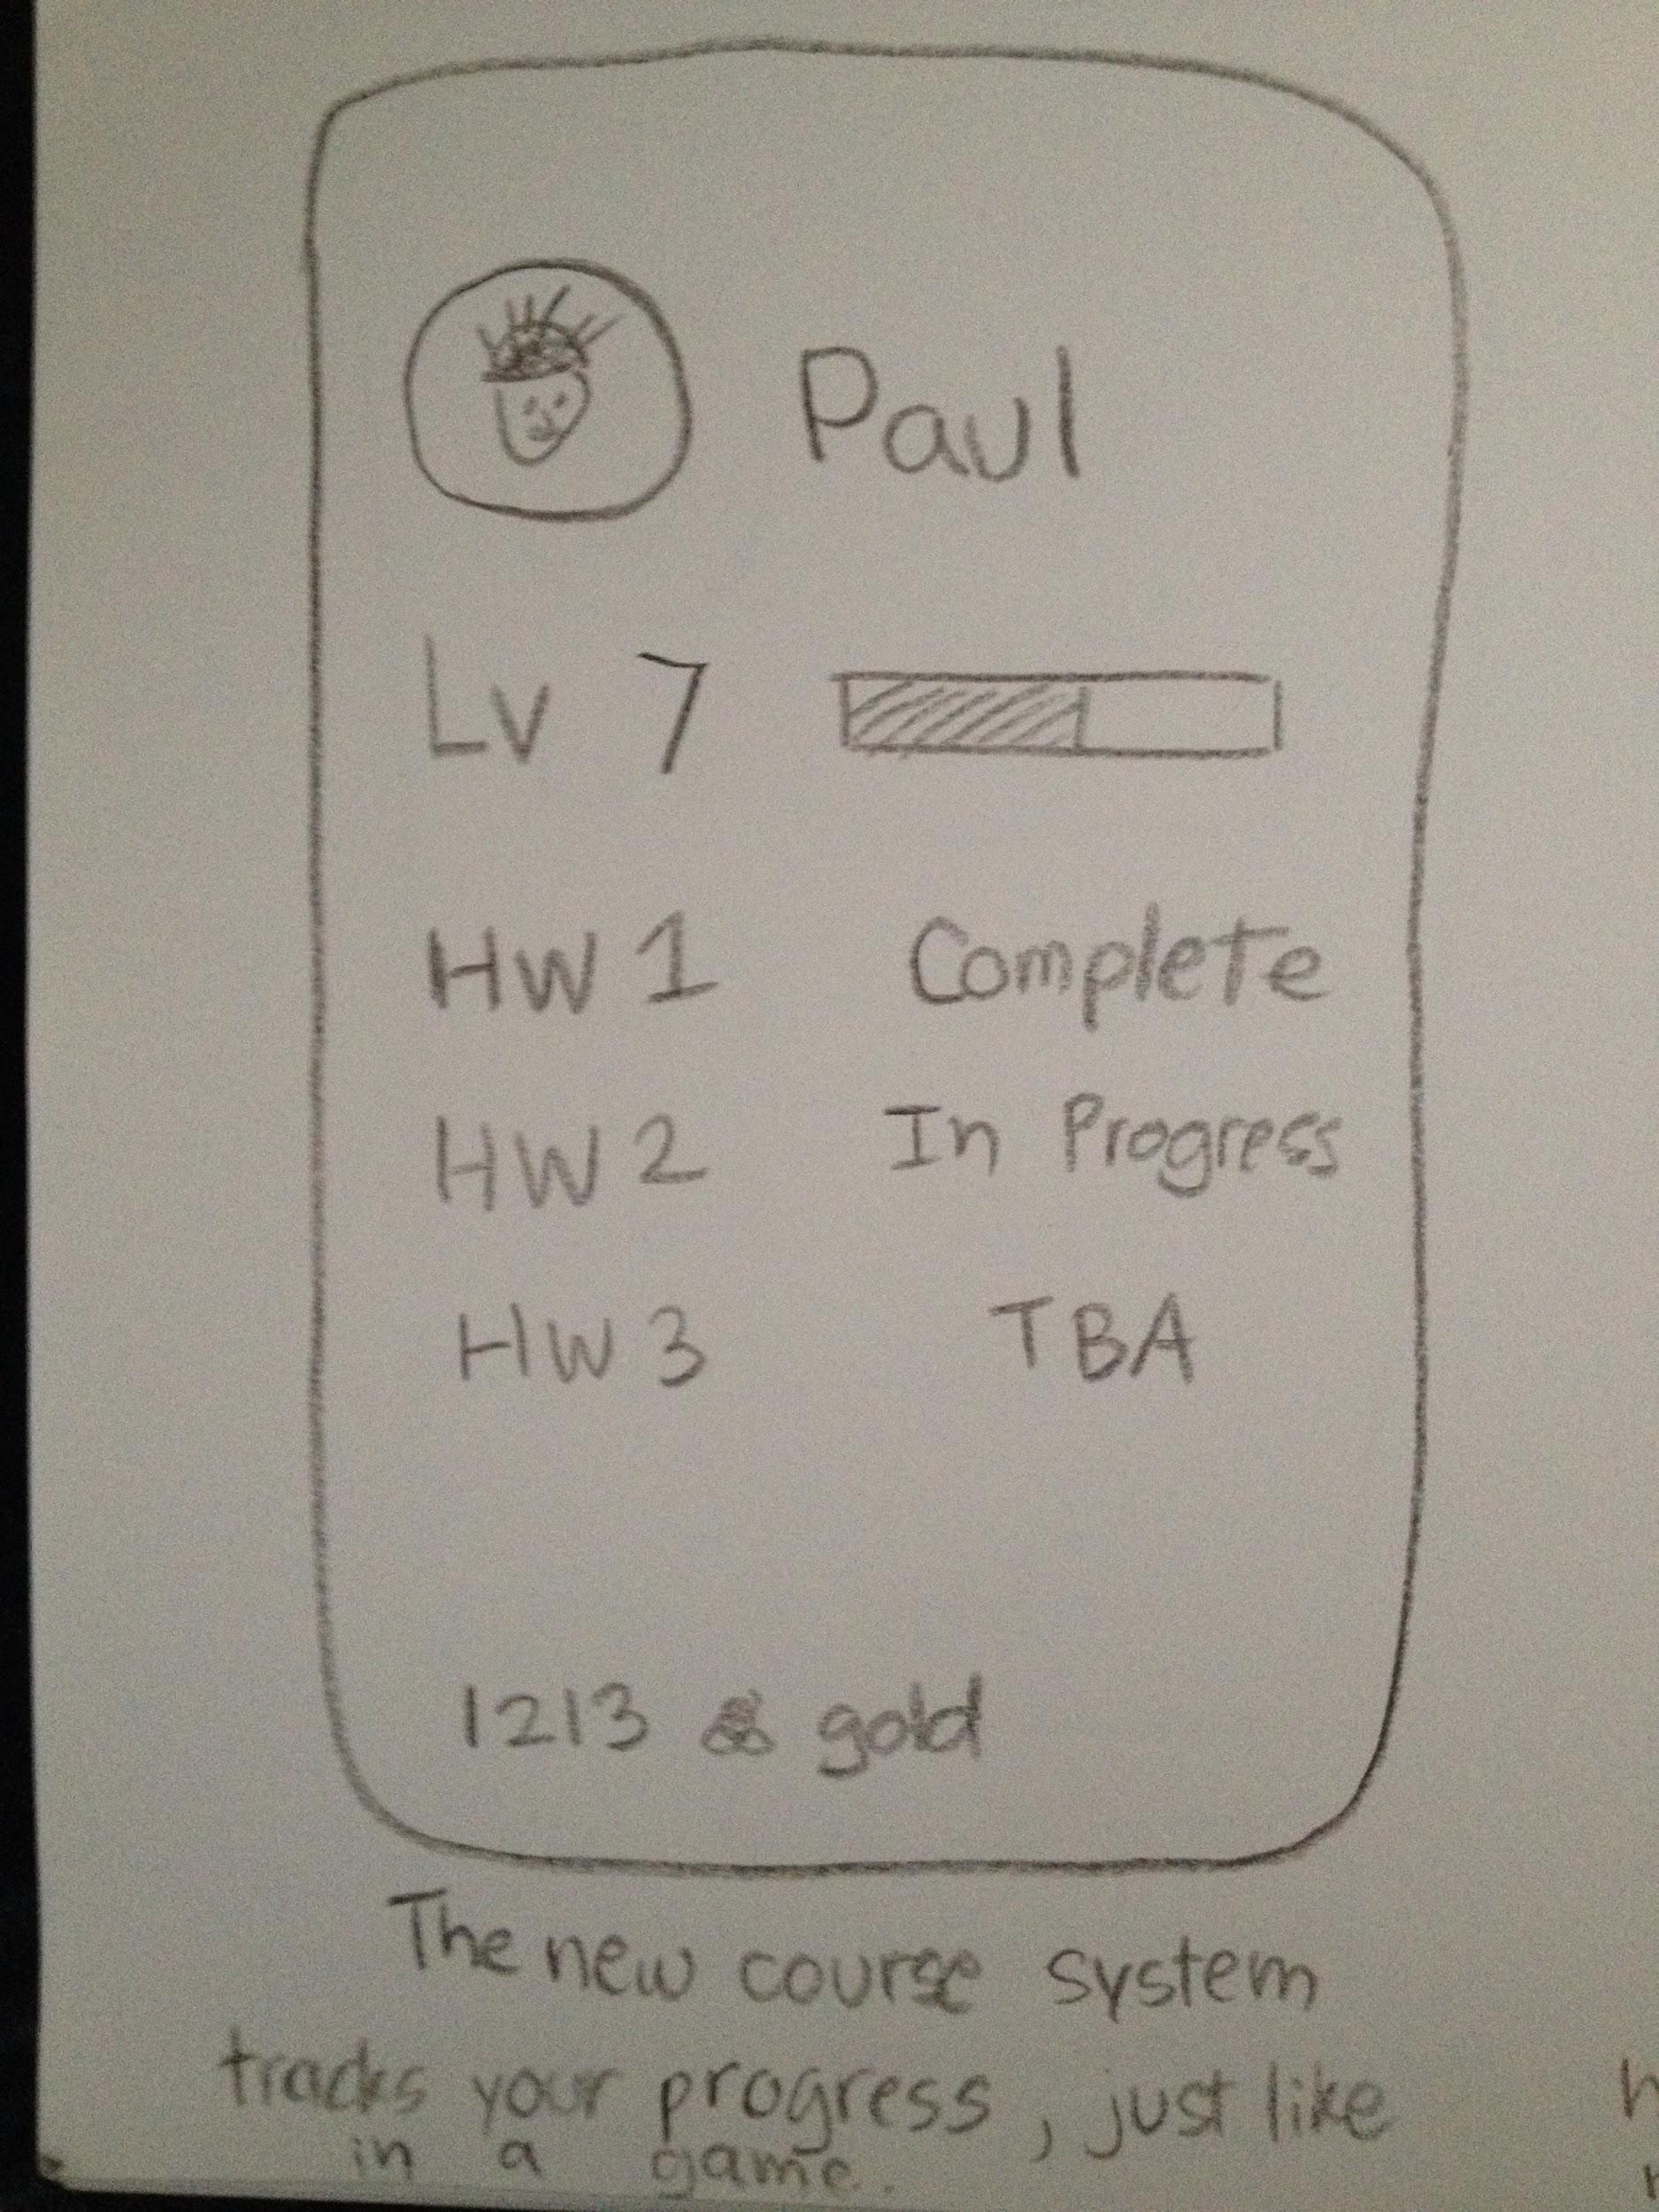 Paul
Lv 7
HW 1 Complete
HW 2 In Progress
HW 3 TBA
1213 gold
The new course system
tracks your progress, just like
in a game.